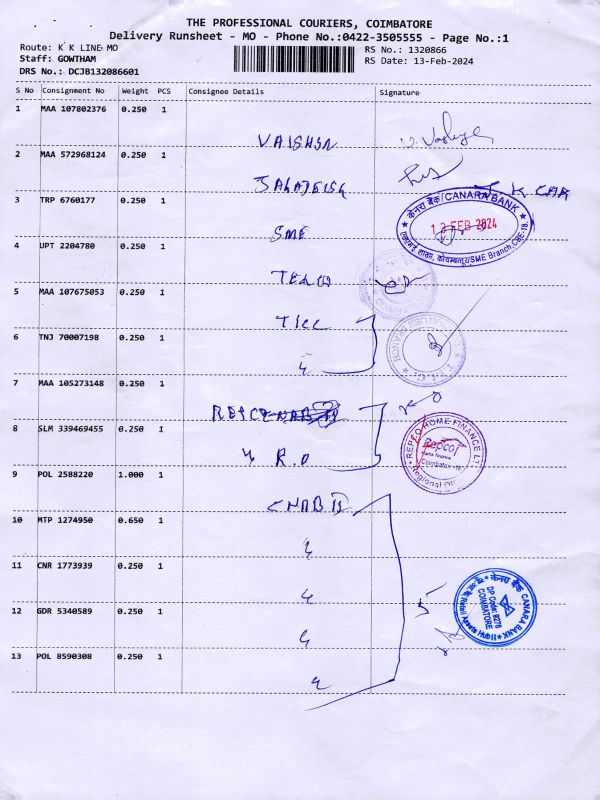 THE PROFESSIONAL COURIERS, COIMBATORE
Delivery Runsheet - MO - Phone No.:0422-3505555 - Page No.:1
Route: K K LINE MO
RS No.: 1320866
Staff: GOWTHAM
RS Date: 13-Feb-2024
DRS No.: DCJB132086601
S No Consignment No Weight PCS Consignee Details Signature
1 MAA 107802376 0.250 1
2 MAA 572968124 0.250 1
3 TRP 6760177 0.250 1
SME
केनरा बैंक/CANARA BANK
13 FEB 2024
SME Branch, CBE-18.
4 UPT 2204780 0.250 1
5 MAA 107675053 0.250 1
6 TNJ 70007198 0.250 1
7 MAA 105273148 0.250 1
8 SLM 339469455 0.250 1
R.O
REPCO HOME FINANCE LT
Repco
Home Finance
Coimbatore -18
Regional
9 POL 2588220 1.000 1
10 MTP 1274950 0.650 1
11 CNR 1773939 0.250 1
केनरा बैंक CANARA BANK
DP Code: 8276
COIMBATORE
Retail Assets Hub II
12 GDR 5340589 0.250 1
13 POL 8590308 0.250 1